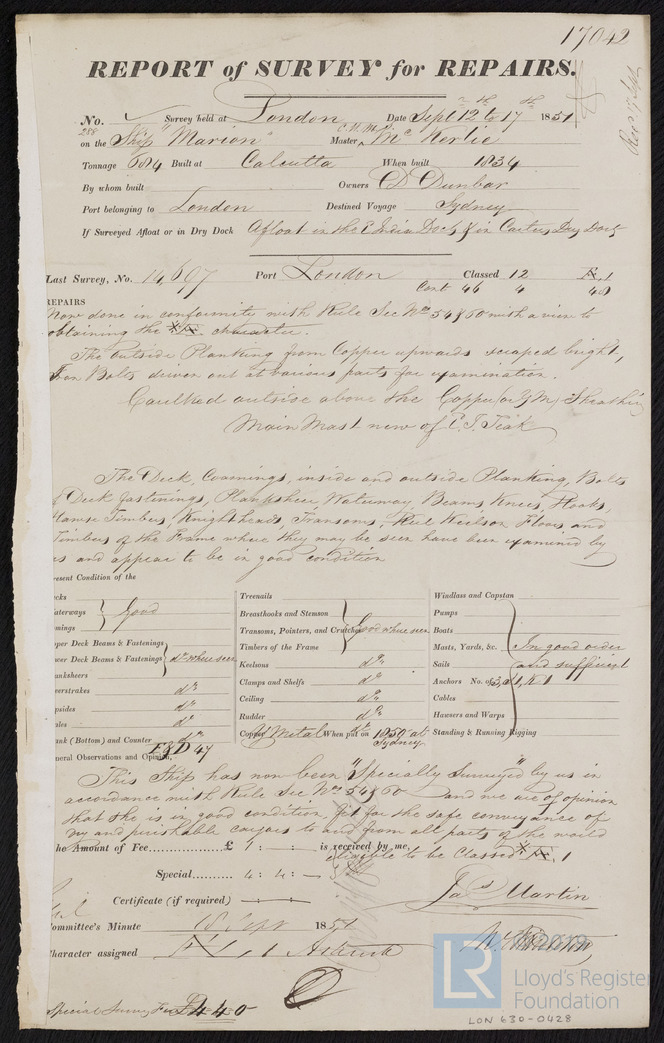 17042
REPORT of SURVEY for REPAIRS.
No. Survey held at London Date Sept 12th to 17th 1851
288
on the Ship "Marion" Master Mc Kerlie
Tonnage 684 Built at Calcutta When built 1834
By whom built Owners D Dunbar
Port belonging to London Destined Voyage Sydney
If Surveyed Afloat or in Dry Dock Afloat in the E India Dock & in Dry Dock
Last Survey, No. 14,697 Port London Classed 12 1
Cont 46 4 48
REPAIRS
Now done in conformity with Rule Sec Nos 54 & 60 with a view to
obtaining the character.
The outside Planking from Copper upwards scraped bright,
Iron Bolts driven out at various parts for examination.
Caulked outside above the Copper (or Y M) Sheathing
Main Mast new of E. I. Teak
The Deck, Coamings, inside and outside Planking, Bolts
Deck fastenings, Planksheer Waterway, Beams Knees, Hooks,
Hawse Timbers, Knightheads, Transoms, Keel Keelson Floors and
Timbers of the Frame where they may be seen have been examined by
us and appear to be in good condition
resent Condition of the
cks
aterways Good
mings
pper Deck Beams & Fastenings
wer Deck Beams & Fastenings do where seen
anksheers
eerstrakes do
psides do
ales do
ank (Bottom) and Counter do
Treenails
Breasthooks and Stemson
Transoms, Pointers, and Crutches Good where seen
Timbers of the Frame
Keelsons do
Clamps and Shelfs do
Ceiling do
Rudder do
Copper Y Metal When put on 1850 at
Sydney
Windlass and Capstan
Pumps
Boats
Masts, Yards, &c. In good order
Sails and sufficient
Anchors No. of 3, 1, 1
Cables
Hawsers and Warps
Standing & Running Rigging
F & D 47
neral Observations and Opinion,
This Ship has now been "Specially Surveyed" by us in
accordance with Rule Sec Nos 54 & 60 and we are of opinion
that she is in good condition fit for the safe conveyance of
dry and perishable cargoes to and from all parts of the world
eligible to be Classed 1
he Amount of Fee £ 1 : - : - is received by me,
Special 4 : 4 : -
Jas Martin
Certificate (if required) - : - : -
ommittee's Minute 18 Sept 1851
haracter assigned 1
Special Survey Fee £4 4 0
LR
2019
Lloyd's Register
Foundation
LON 630-0428